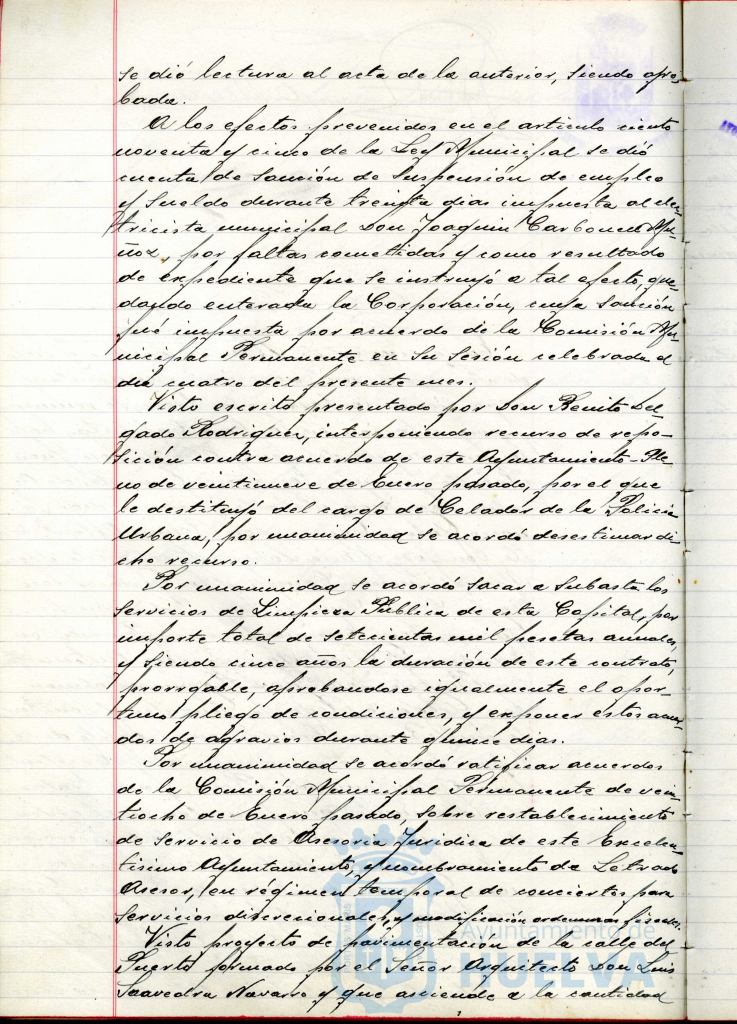 se dió lectura al acta de la anterior, siendo apro-
bada.
A los efectos prevenidos en el articulo ciento
noventa y cinco de la Ley Municipal se dió
cuenta de sanción de suspensión de empleo
y sueldo durante treinta dias impuesta al elec-
tricista municipal Don Joaquin Carbonell Mu-
ñoz, por faltas cometidas y como resultado
de expediente que se instruyó a tal efecto, que-
dando enterada la Corporación, cuya sanción
fué impuesta por acuerdo de la Comisión Mu-
nicipal Permanente en su sesión celebrada el
dia cuatro del presente mes.
Visto escrito presentado por Don Benito Del-
gado Rodriguez, interponiendo recurso de repo-
sición contra acuerdo de este Ayuntamiento-Ple-
no de veintinueve de Enero pasado, por el que
le destituyó del cargo de Celador de la Policia
Urbana, por unanimidad se acordó desestimar di-
cho recurso.
Por unanimidad se acordó sacar a subasta los
servicios de Limpieza Pública de esta Capital, por
importe total de setecientas mil pesetas anuales,
y siendo cinco años la duración de este contrato,
prorrogable, aprobandose igualmente el opor-
tuno pliego de condiciones, y exponer estos acuer-
dos de agravios durante quince dias.
Por unanimidad se acordó ratificar acuerdos
de la Comisión Municipal Permanente de vein-
tiocho de Enero pasado, sobre restablecimiento
de servicio de Asesoria Juridica de este Excelen-
tisimo Ayuntamiento, y nombramiento de Letrado
Asesor, en régimen temporal de conciertos para
servicios discrecionales, y modificación ordenanzas fiscales.
Visto proyecto de pavimentación de la calle del
Puerto formado por el Señor Arquitecto Don Luis
Saavedra Navarro y que asciende a la cantidad
Ayuntamiento de
HUELVA